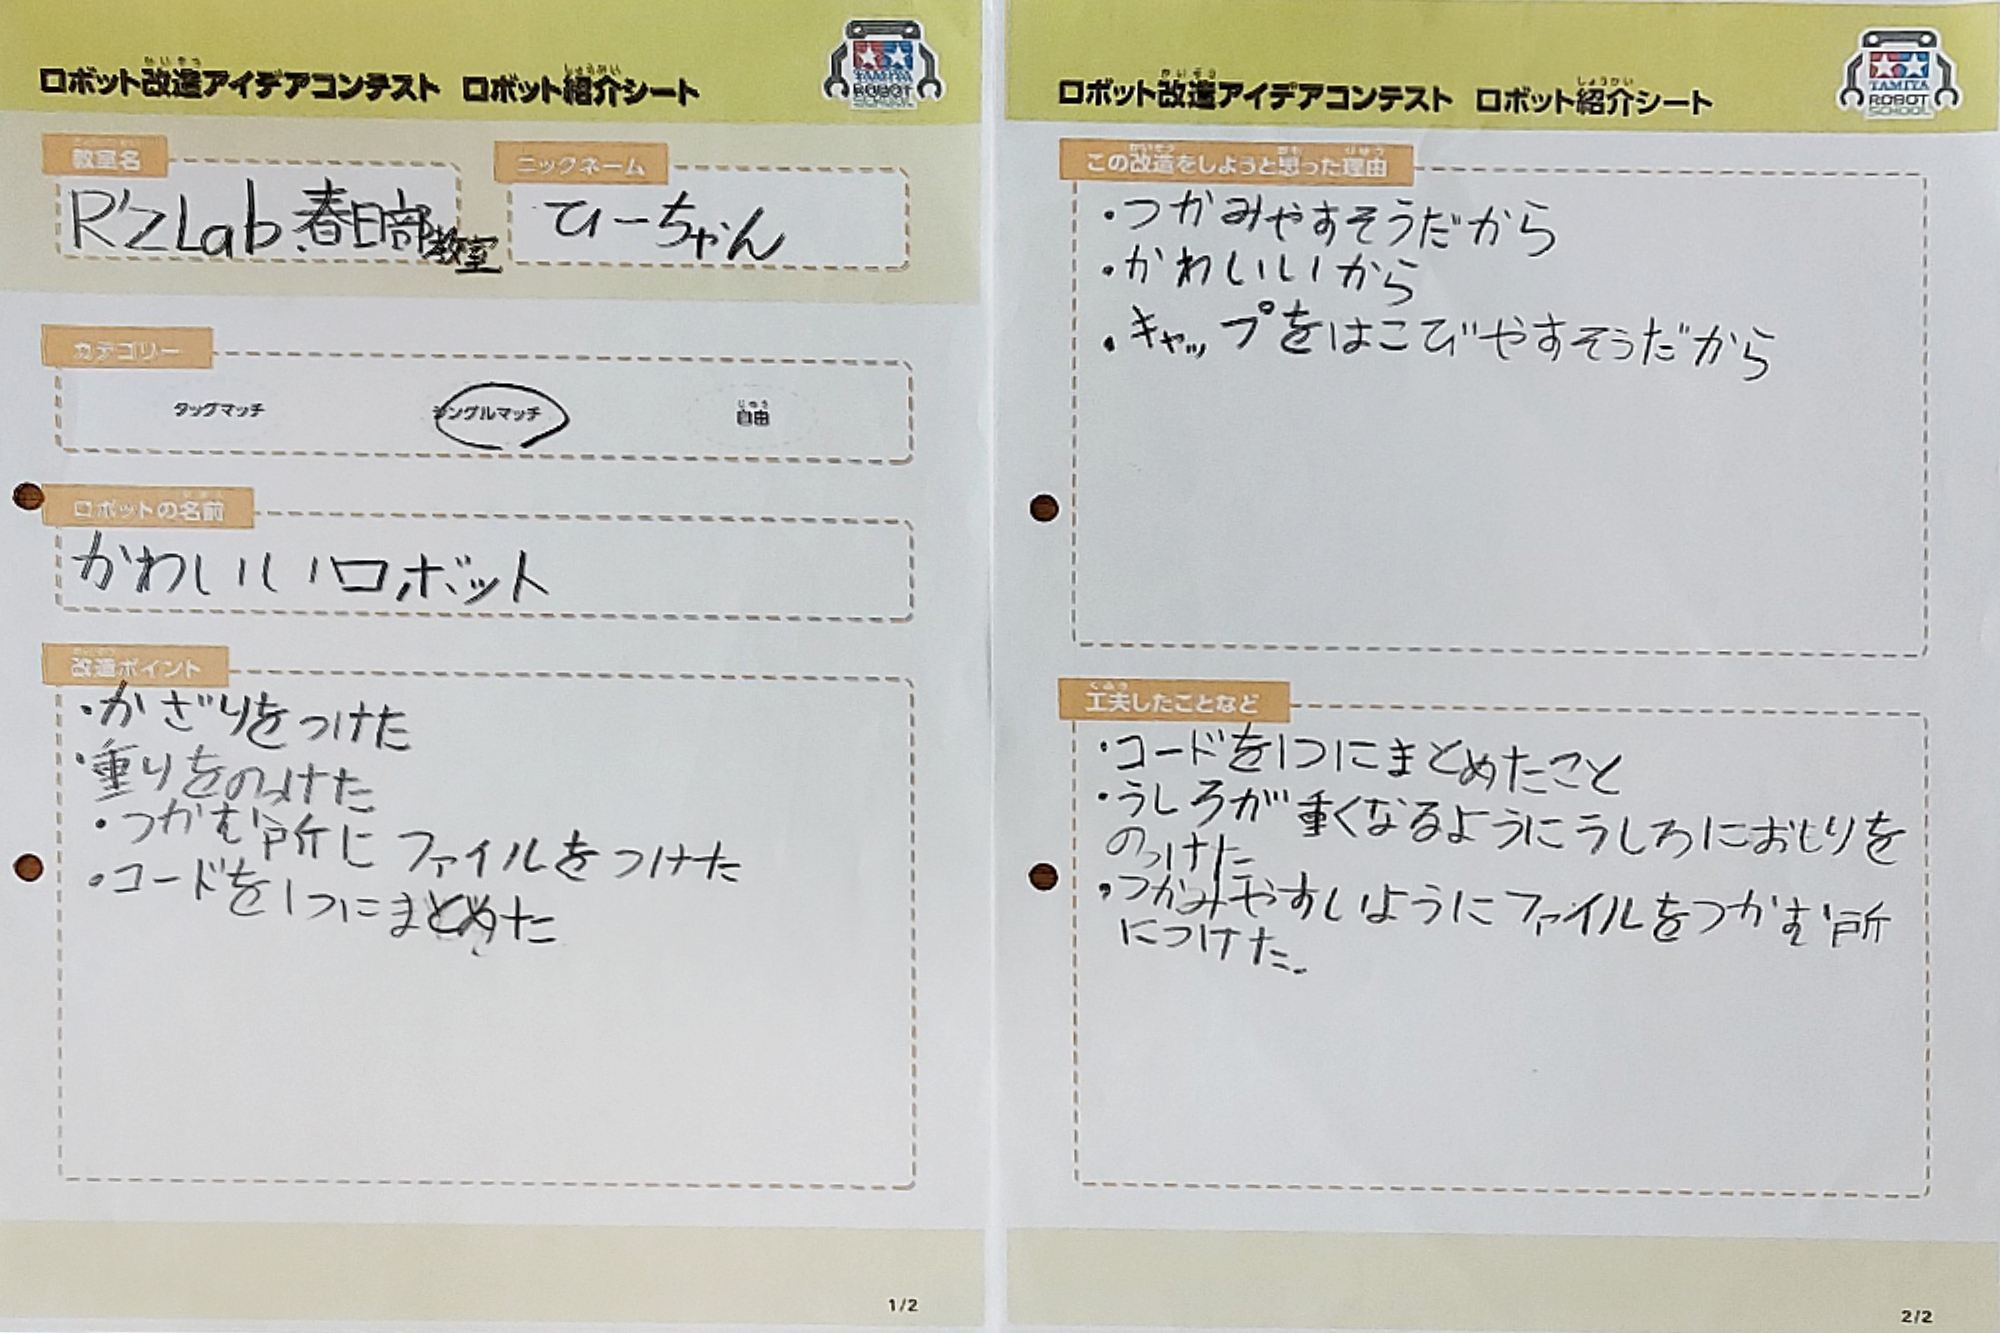 ロボット改造アイデアコンテスト ロボット紹介シート
TAMIYA
ROBOT
SCHOOL
教室名
R'zLab.春日部教室
ニックネーム
ひーちゃん
カテゴリー
タッグマッチ
シングルマッチ
じゆう
自由
ロボットの名前
かわいいロボット
改造ポイント
・かざりをつけた
・重りをのっけた
・つかむ所にファイルをつけた
・コードを1つにまとめた
1/2
かいぞう
しょうかい
ロボット改造アイデアコンテスト ロボット紹介シート
TAMIYA
ROBOT
SCHOOL
この改造をしようと思った理由
・つかみやすそうだから
・かわいいから
・キャップをはこびやすそうだから
くふう
工夫したことなど
・コードを1つにまとめたこと
・うしろが重くなるようにうしろにおもりを
のっけた
・つかみやすいようにファイルをつかむ所
につけた。
2/2